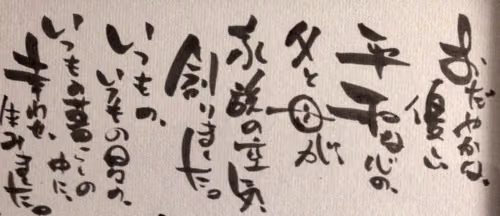 おだやかな、
優しい
平和な心の、
父と母が
家族の空気、
創りました。
いつもの、
いつもの男の、
いつもの暮らしの中に、
幸わせ
生みました。